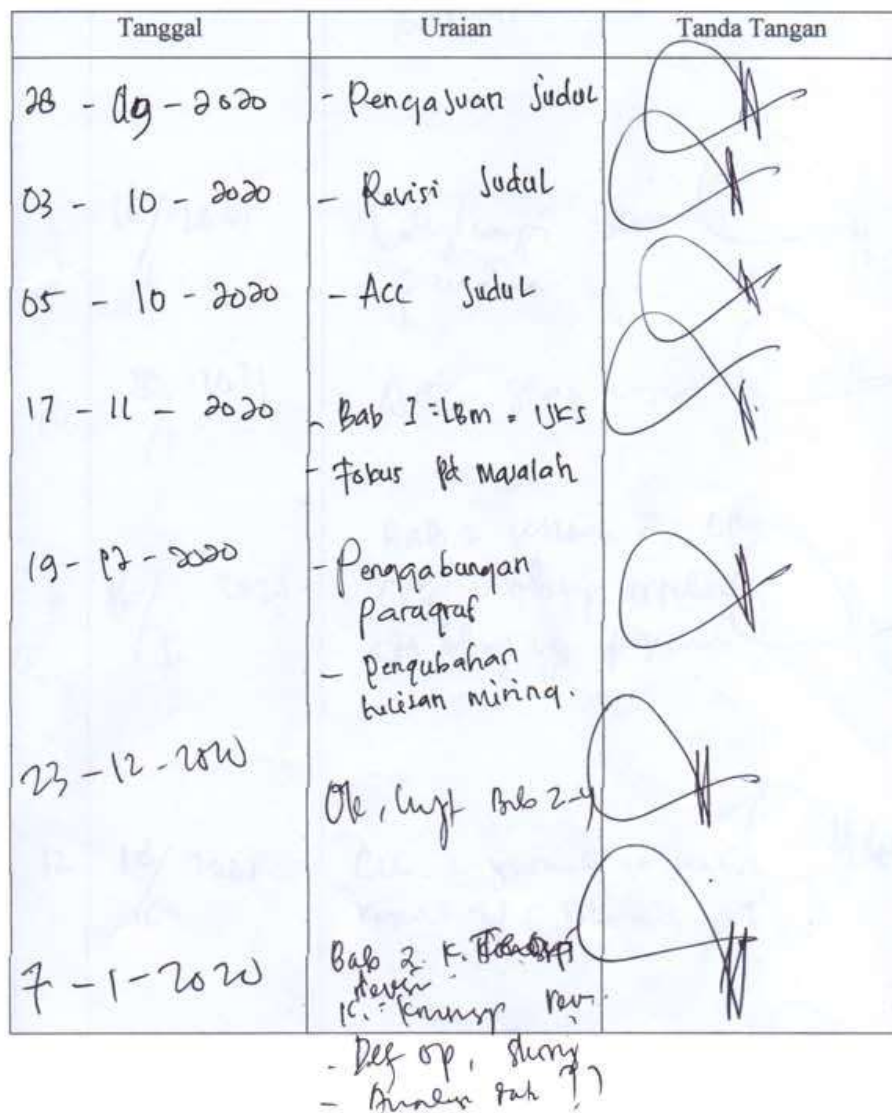 Tanggal Uraian Tanda Tangan
28 - 09 - 2020 - Pengajuan judul
03 - 10 - 2020 - Revisi Judul
05 - 10 - 2020 - Acc Judul
17 - 11 - 2020 - Bab I = LBM = UKS
- Fokus pd Masalah
19 - 12 - 2020 - Penggabungan
paragraf
- Pengubahan
tulisan miring.
23 - 12 - 2020
Ok, Bab 2-4
7 - 1 - 2020 Bab 2. K.
revisi
K. Konsep rev.
- Def op,
- ??